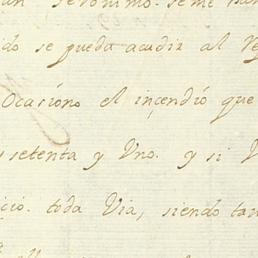 an Jeronimo. seme
do se pueda acudir al
Ocasiono el incendio que
setenta y Uno. y si
icio. toda Via, siendo tan